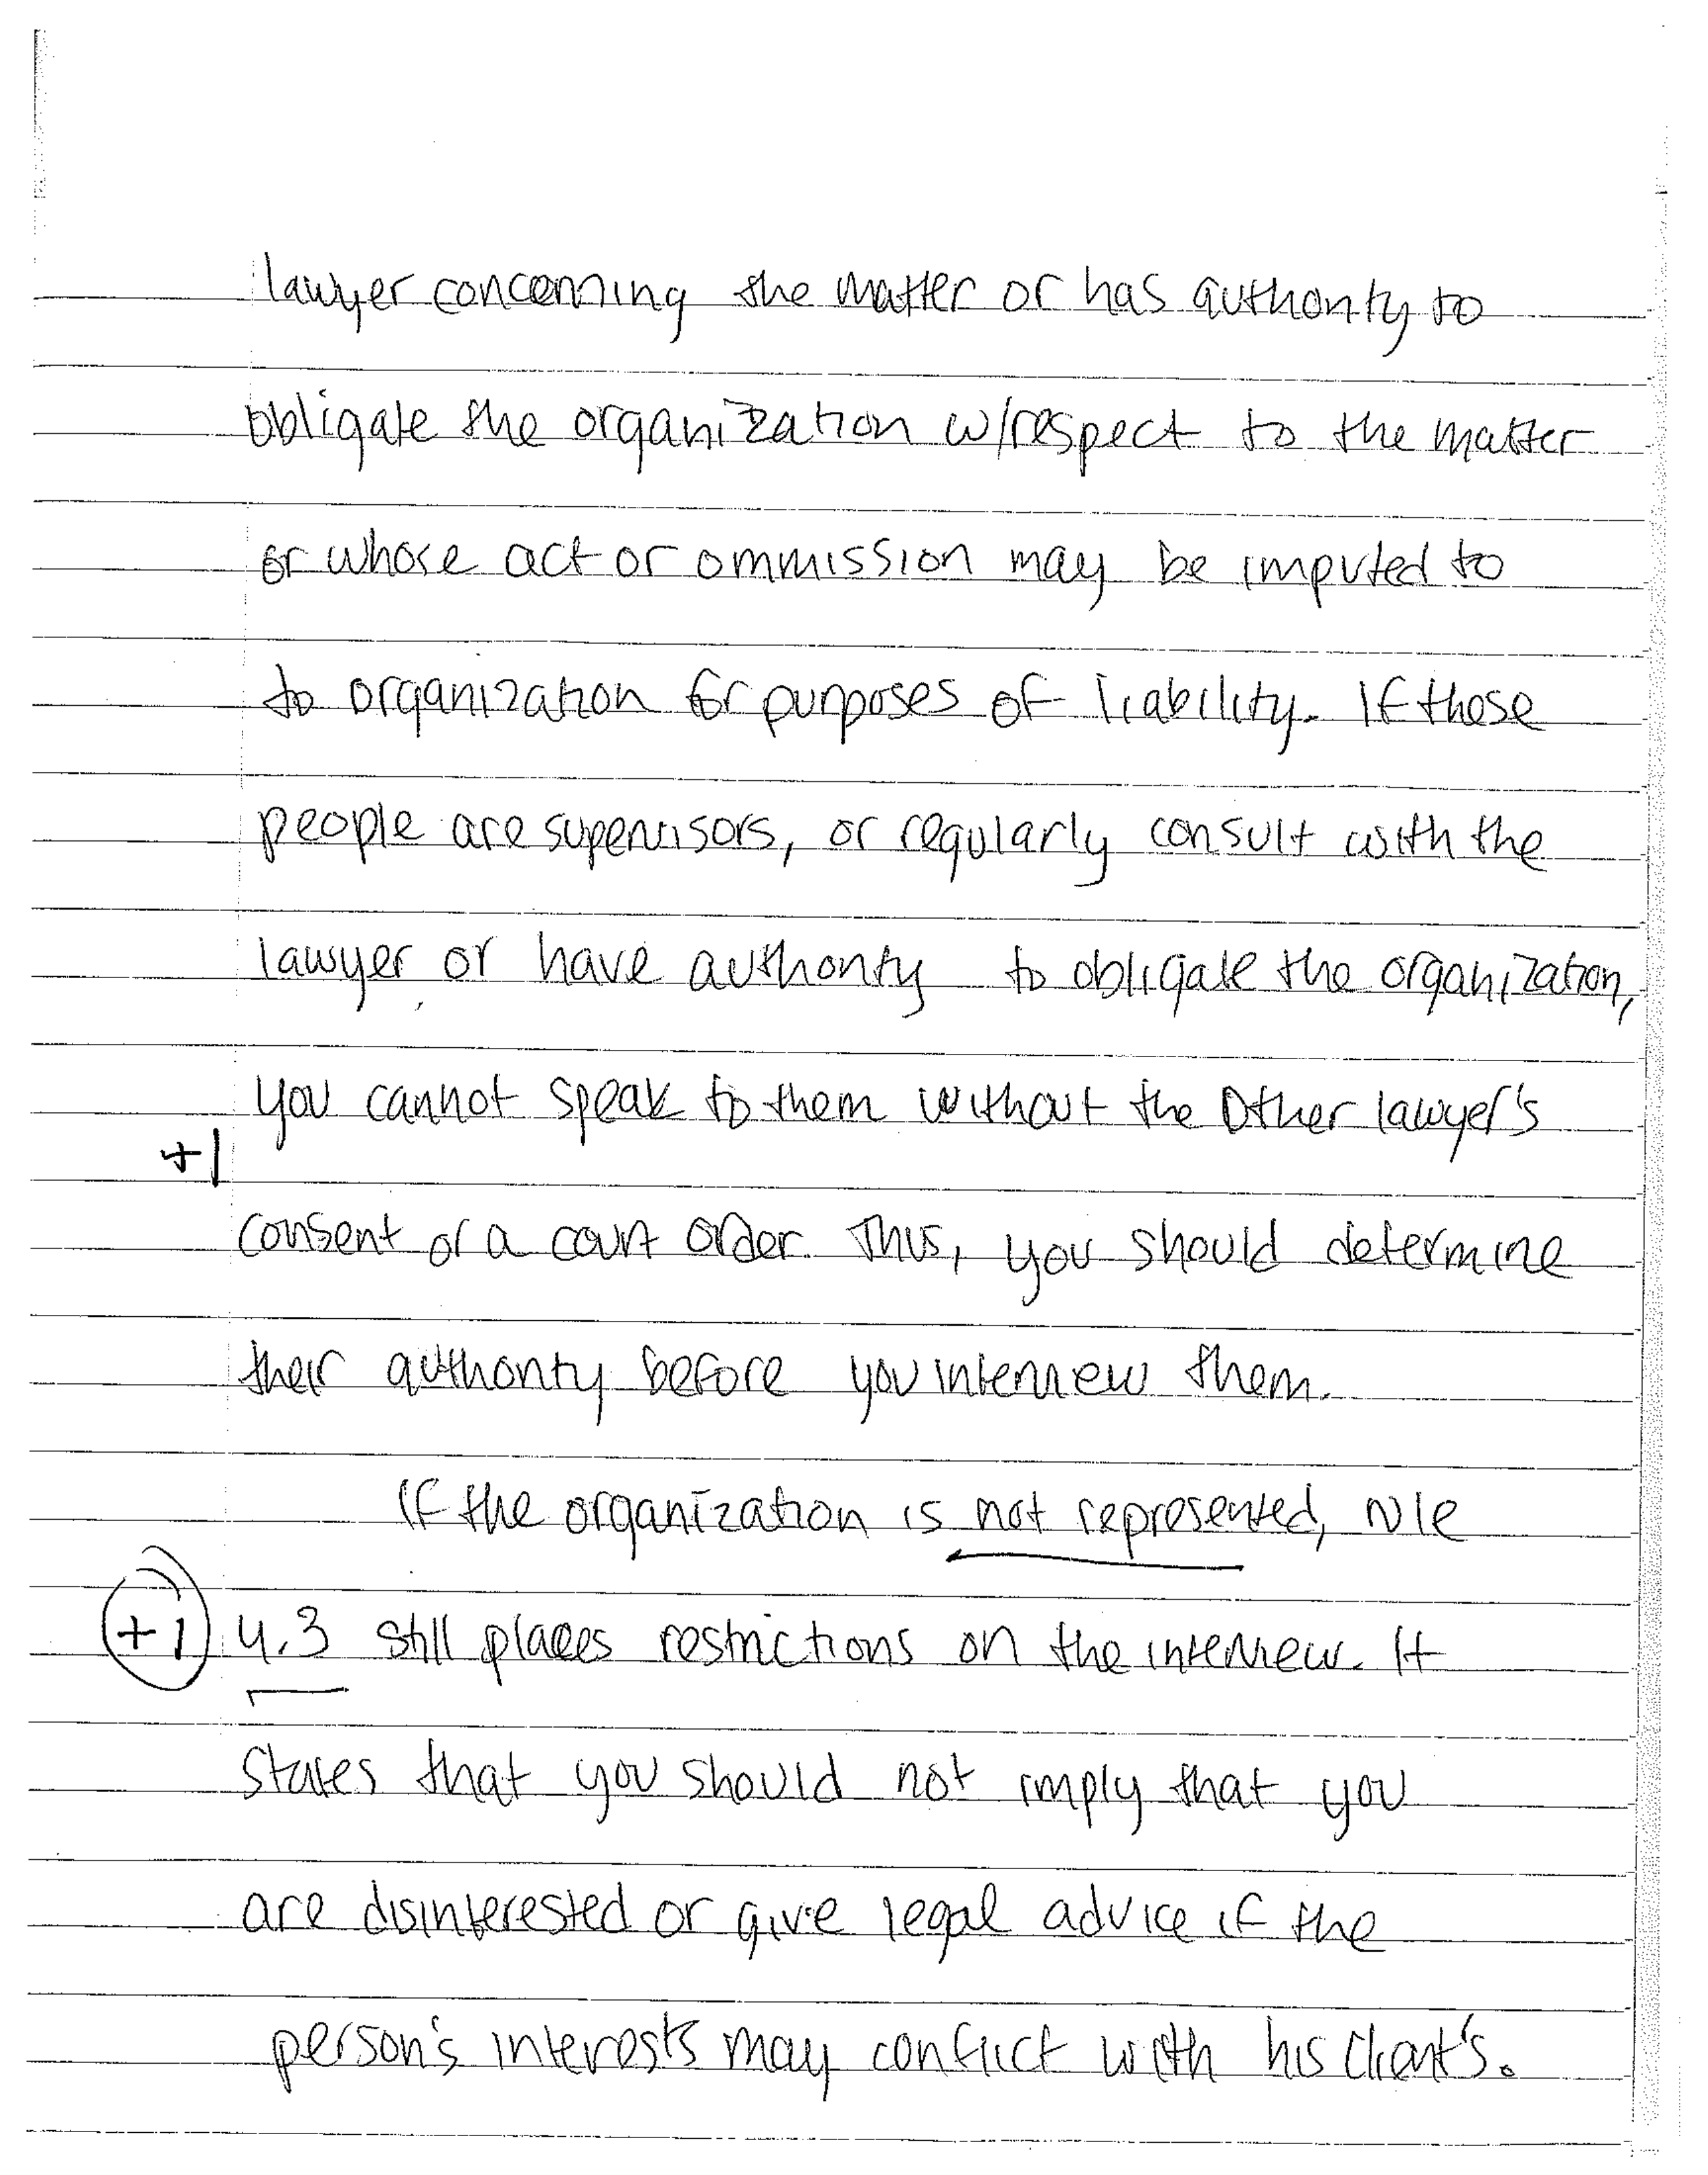 lawyer concerning the matter or has authority to
obligate the organization w/respect to the matter
or whose act or ommission may be imputed to
to organization for purposes of liability. If those
people are supervisors, or regularly consult with the
lawyer or have authority to obligate the organization,
you cannot speak to them without the Other lawyer's
+1
consent or a court order. Thus, you should determine
their authority before you interview them.
If the organization is not represented, rule
+1 4.3 still places restrictions on the interview. It
states that you should not imply that you
are disinterested or give legal advice if the
person's interests may conflict with his client's.